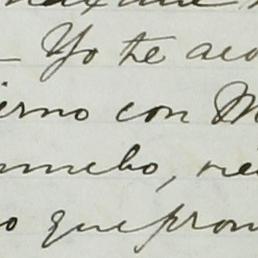 Yo te aco
ierno con M
mucho, ne
o que prom